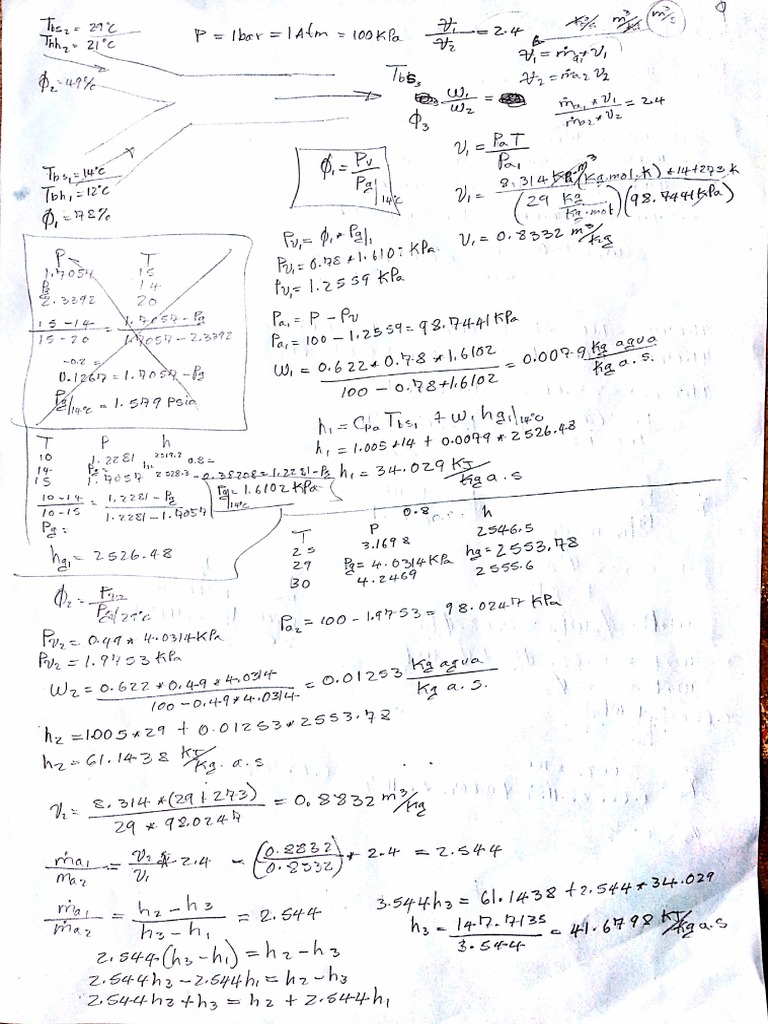 Tbs₂ = 29°C
Tbh₂ = 21°C
ϕ₂ = 49%
P = 1bar = 1Atm = 100KPa
V₁/V₂ = 2.4
m³/s
V₁ = ṁa₁*v₁
V₂ = ṁa₂ v₂
Tbs₃
ω₁/ω₂ =
ϕ₃
ṁa₁*v₁/ṁa₂*v₂ = 2.4
Tbs₁ = 14°C
Tbh₁ = 12°C
ϕ₁ = 78%
ϕ₁ = Pv/Pg|14°C
v₁ = PaT/Pa₁
v₁ = 8.314 (Kg.mol.K)*14+273.K / (29 Kg/Kg.mol)(98.7441KPa)
v₁ = 0.8332 m³/Kg
P T
1.7057 15
Pg 14
2.3392 20
15-14/15-20 = 1.7057-Pg/1.7057-2.3392
-0.2 =
0.1267 = 1.7057-Pg
Pg|14°C = 1.579 Psia
Pv₁ = ϕ₁*Pg|₁
Pv₁ = 0.78*1.6102 KPa
Pv₁ = 1.2559 KPa
Pa₁ = P - Pv
Pa₁ = 100 - 1.2559 = 98.7441KPa
ω₁ = 0.622*0.78*1.6102/100-0.78*1.6102 = 0.0079 Kg agua/Kg a.s.
h₁ = CpaTbs₁ + ω₁hg₁|14°C
h₁ = 1.005*14 + 0.0079*2526.48
h₁ = 34.029 KJ/Kg a.s
T P h
10 1.2281 2519.2
14 Pg= h= 0.8 =
15 1.7057 2528.3
-0.38208 = 1.2281-Pg
10-14/10-15 = 1.2281-Pg/1.2281-1.7057
Pg|14°C = 1.6102KPa
Pg =
hg₁ = 2526.48
0.8
T P h
25 3.1698 2546.5
29 Pg = 4.0314KPa hg = 2553.78
30 4.2469 2555.6
ϕ₂ = Pv₂/Pg|29°C
Pa₂ = 100 - 1.9753 = 98.0247 KPa
Pv₂ = 0.49*4.0314KPa
Pv₂ = 1.9753KPa
ω₂ = 0.622*0.49*4.0314/100-0.49*4.0314 = 0.01253 Kg agua/Kg a.s.
h₂ = 1.005*29 + 0.01253*2553.78
h₂ = 61.1438 KJ/Kg.a.s
v₂ = 8.314*(29+273)/29*98.0247 = 0.8832 m³/Kg
ṁa₁/ṁa₂ = v₂/v₁*2.4 = (0.8832/0.8332)*2.4 = 2.544
ṁa₁/ṁa₂ = h₂-h₃/h₃-h₁ = 2.544
2.544(h₃-h₁) = h₂-h₃
2.544h₃-2.544h₁ = h₂-h₃
2.544h₃+h₃ = h₂+2.544h₁
3.544h₃ = 61.1438+2.544*34.029
h₃ = 147.7135/3.544 = 41.6798 KJ/Kga.s